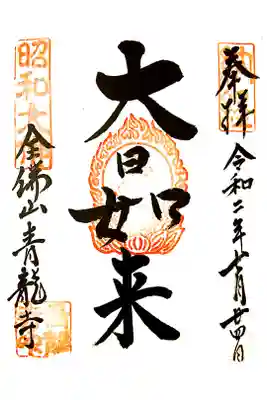 奉拝
令和二年月廿四日
大日如来
昭和大
全佛山青龍寺